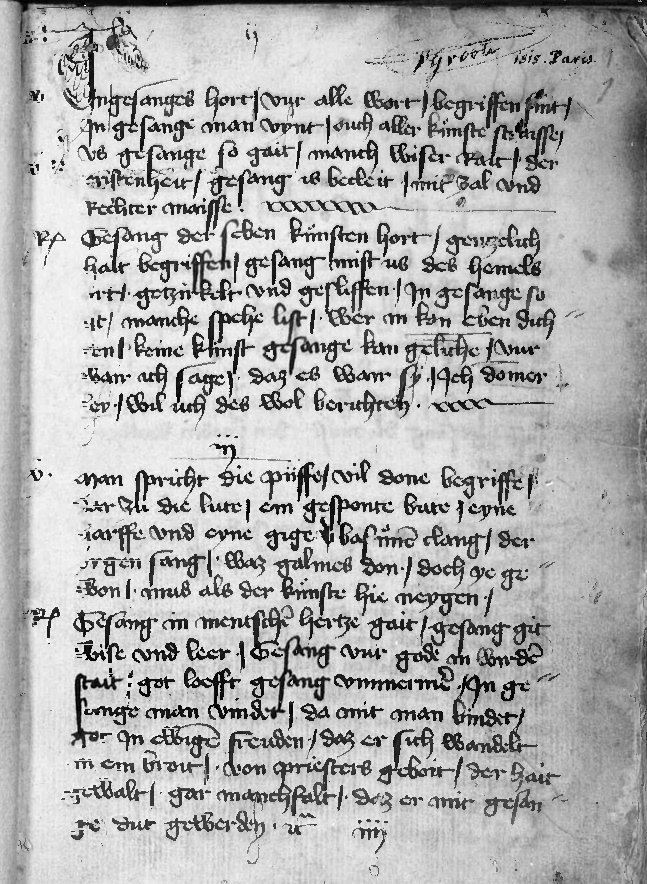 ij
1815. Paris
Ingesanges hort / vur alle wort / begriffen sint /
In gesange man vynt / ouch aller kunste
vs gesange so gait / manch wiser Rait / der
cristenheit / gesang is becleit / mit zal vnd
Rechter maisse.
Gesang der seben kunsten hort / gentzelich
hait begriffen / gesang mist us des hemels
gezirkelt vnd gesliffen / In gesange so
manche spehe list / wer in kan eben dich
ten / keine kunst gesange kan geliche / vur
wair ich sage / daz es wair sy / Ich domer
ey / wil uch des wol berichten.
iij
v. Man spricht die piiffe / vil done begriffe /
dar zu die lute / ein gesponte bute / eyne
harffe vnd eyne gige / clang / der
orgen sang / waz galmes don / doch ye ge
won / mus als der kunste hie neygen /
Gesang in mentschē hertze gait / gesang git
wise vnd leer / Gesang vur gode in wirdē
stait / got loefft gesang vmmermē / In ge
sange man vindet / da mit man bindet /
got In ewigē freuden / daz er sich wandelt
in ein broit / von priesters geboit / der hait
gewalt / gar manchfalt / daz er mit gesan
ge dut gewerden
iiij